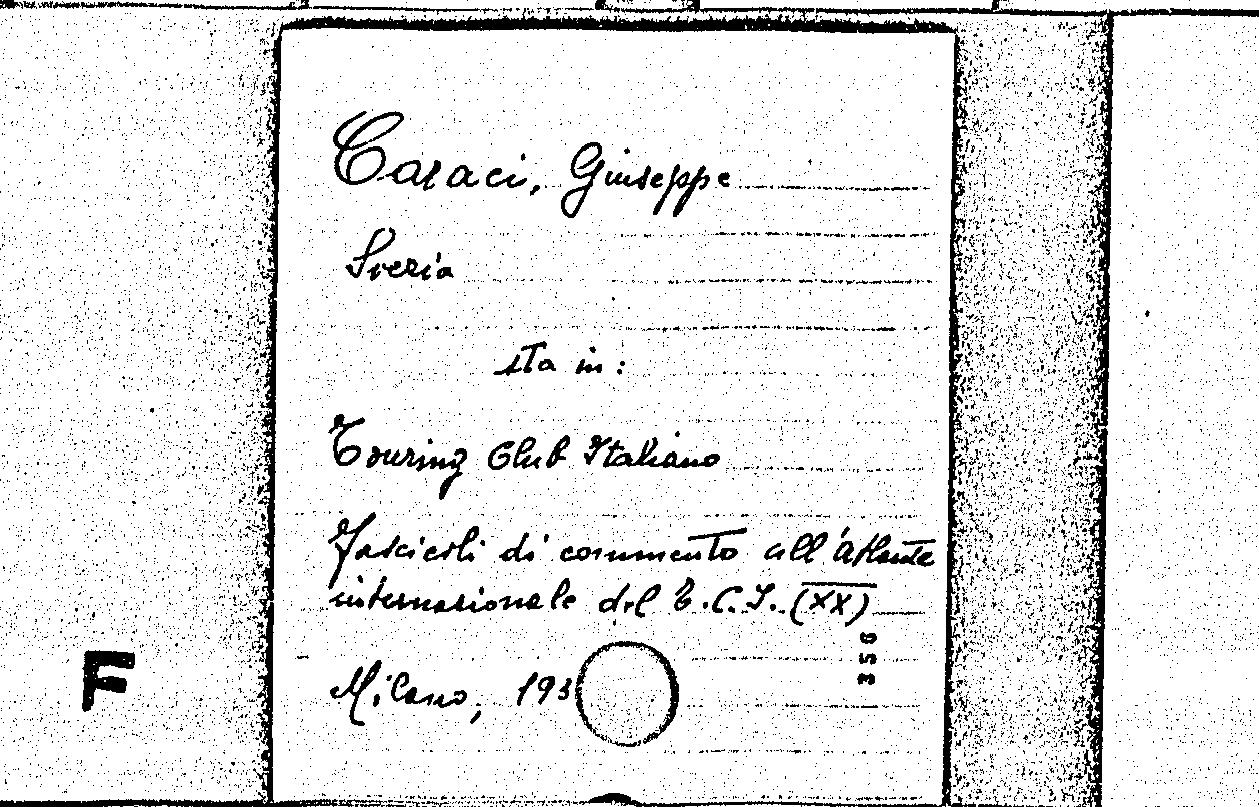 Caraci, Giuseppe
Svezia
sta in:
Touring Club Italiano
Fascicoli di commento all'atlante
internazionale del T.C.I. (XX)
356
Milano, 193
F